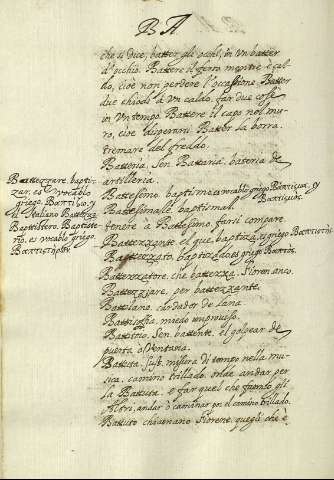 BA
che si dice, batter gli occhi, in un batter
d'occhio. Battere il ferro mentre è cal-
do, cioè non perdere l'occasione. Batter
due chiodi à un caldo, far due cose
in un tempo. Battere il capo nel mu-
ro, cioè disperarsi. Batter la borra,
tremare del freddo.
Batteria. Sen. Battaria. bateria de
artilleria.
Battesimo, baptismo, es vocablo griego Βαπτισμα, y
Βαπτισμός.
Battesimale, baptismal.
tenere à Battesimo, farsi compare.
Battezzante, el que baptiza, es griego
Battezzato, baptizado, es griego
Battezzatore, che battezza, Florentino.
Battezziare, per battezzare.
Battilano, cardador de lana
Battisoffia, miedo impruviso.
Battito, Sen. battente, el golpear de
puerta ò ventana.
Battuta, sust. misura di tempo nella mu-
sica, camino trillado, onde andar per
la Battuta, è far quel che fanno gli
Altri, andar ò caminar por el camino trillado.
Battuto chiamano Fiorent. quegli che è
Battezzare, baptiz-
zar, es vocablo
griego Βαπτίζω, y
el Italiano Battezza
Battistero, Baptiste-
rio, es vocablo griego
Βαπτιστήριον.